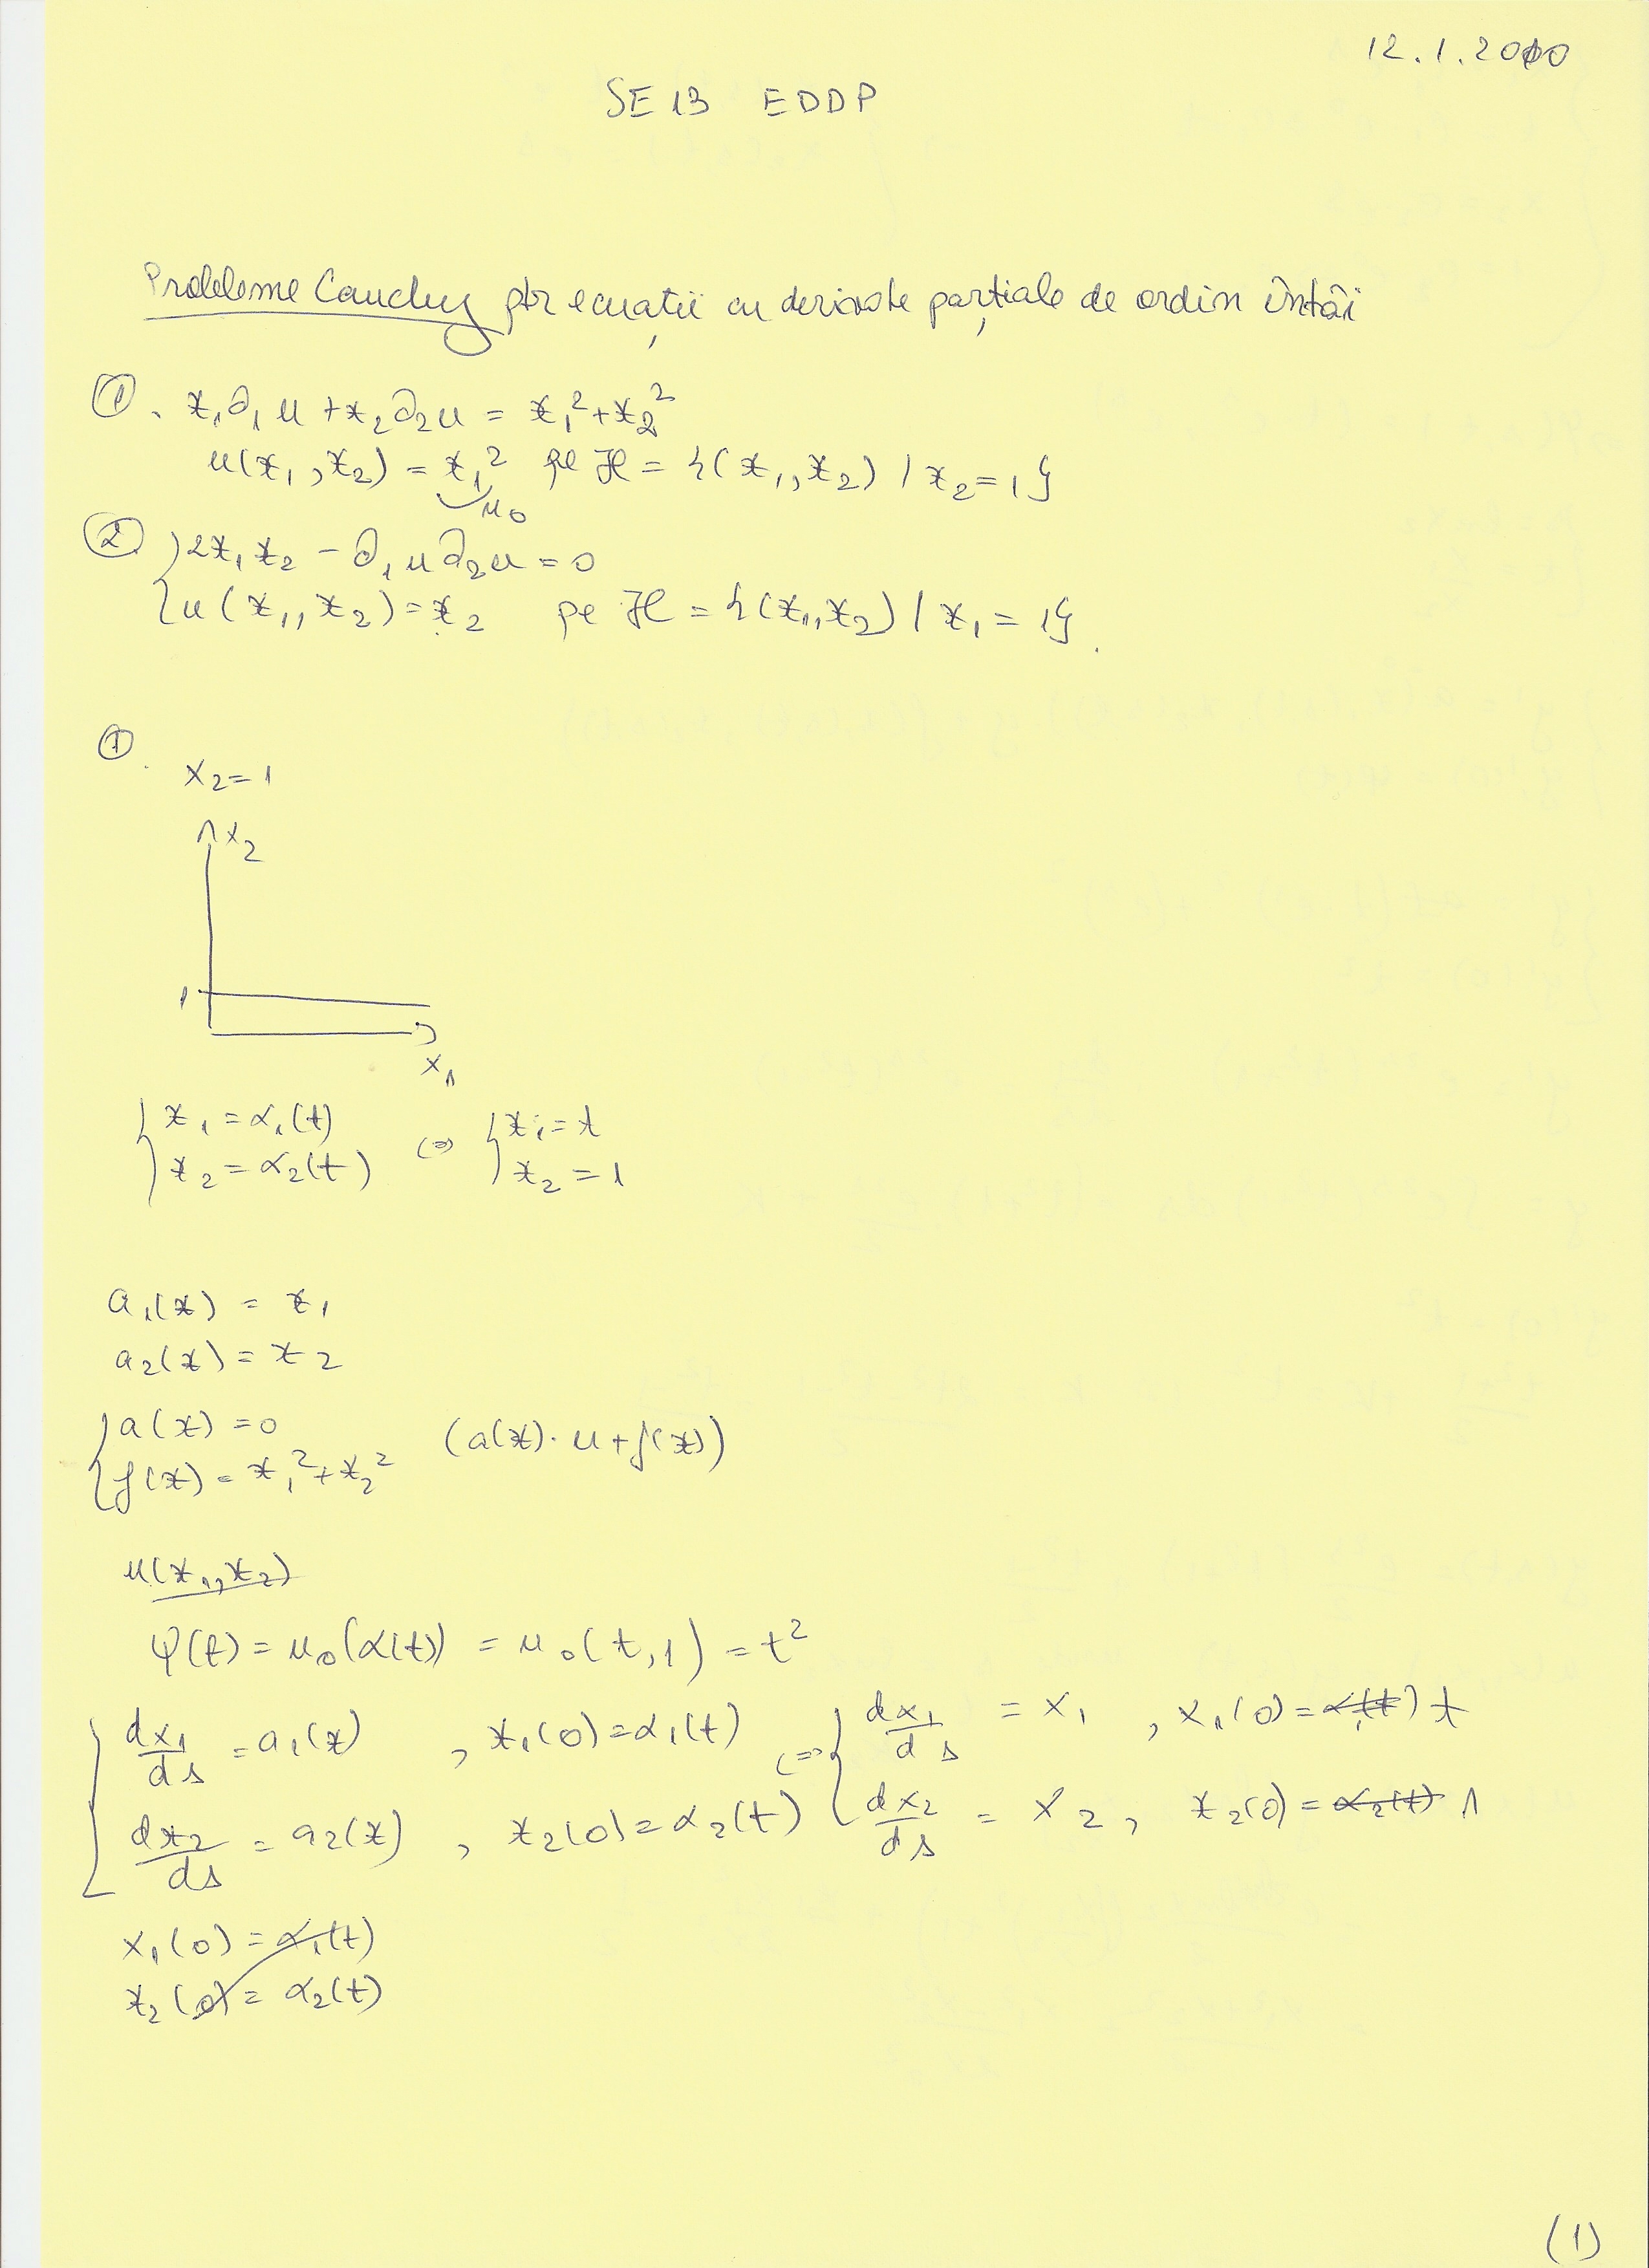 12.1.2010
SE 13 EDDP
Probleme Cauchy ptr ecuații cu derivate parțiale de ordin întâi
① . x₁∂₁u + x₂∂₂u = x₁² + x₂²
u(x₁, x₂) = x₁² pe ℋ = {(x₁, x₂) / x₂ = 1}
u₀
② { 2x₁x₂ − ∂₁u ∂₂u = 0
{ u(x₁, x₂) = x₂ pe ℋ = {(x₁, x₂) / x₁ = 1}.
① .
x₂ = 1
x₂
1
x₁
{ x₁ = α₁(t) ⇔ { x₁ = t
{ x₂ = α₂(t) { x₂ = 1
a₁(x) = x₁
a₂(x) = x₂
{ a(x) = 0 (a(x)·u + f(x))
{ f(x) = x₁² + x₂²
u(x₁, x₂)
φ(t) = u₀(α(t)) = u₀(t, 1) = t²
{ dx₁/ds = a₁(x) , x₁(0) = α₁(t) ⇔ { dx₁/ds = x₁ , x₁(0) = α₁(t) t
{ dx₂/ds = a₂(x) , x₂(0) = α₂(t) { dx₂/ds = x₂ , x₂(0) = α₂(t) 1
x₁(0) = α₁(t)
x₂(0) = α₂(t)
(1)